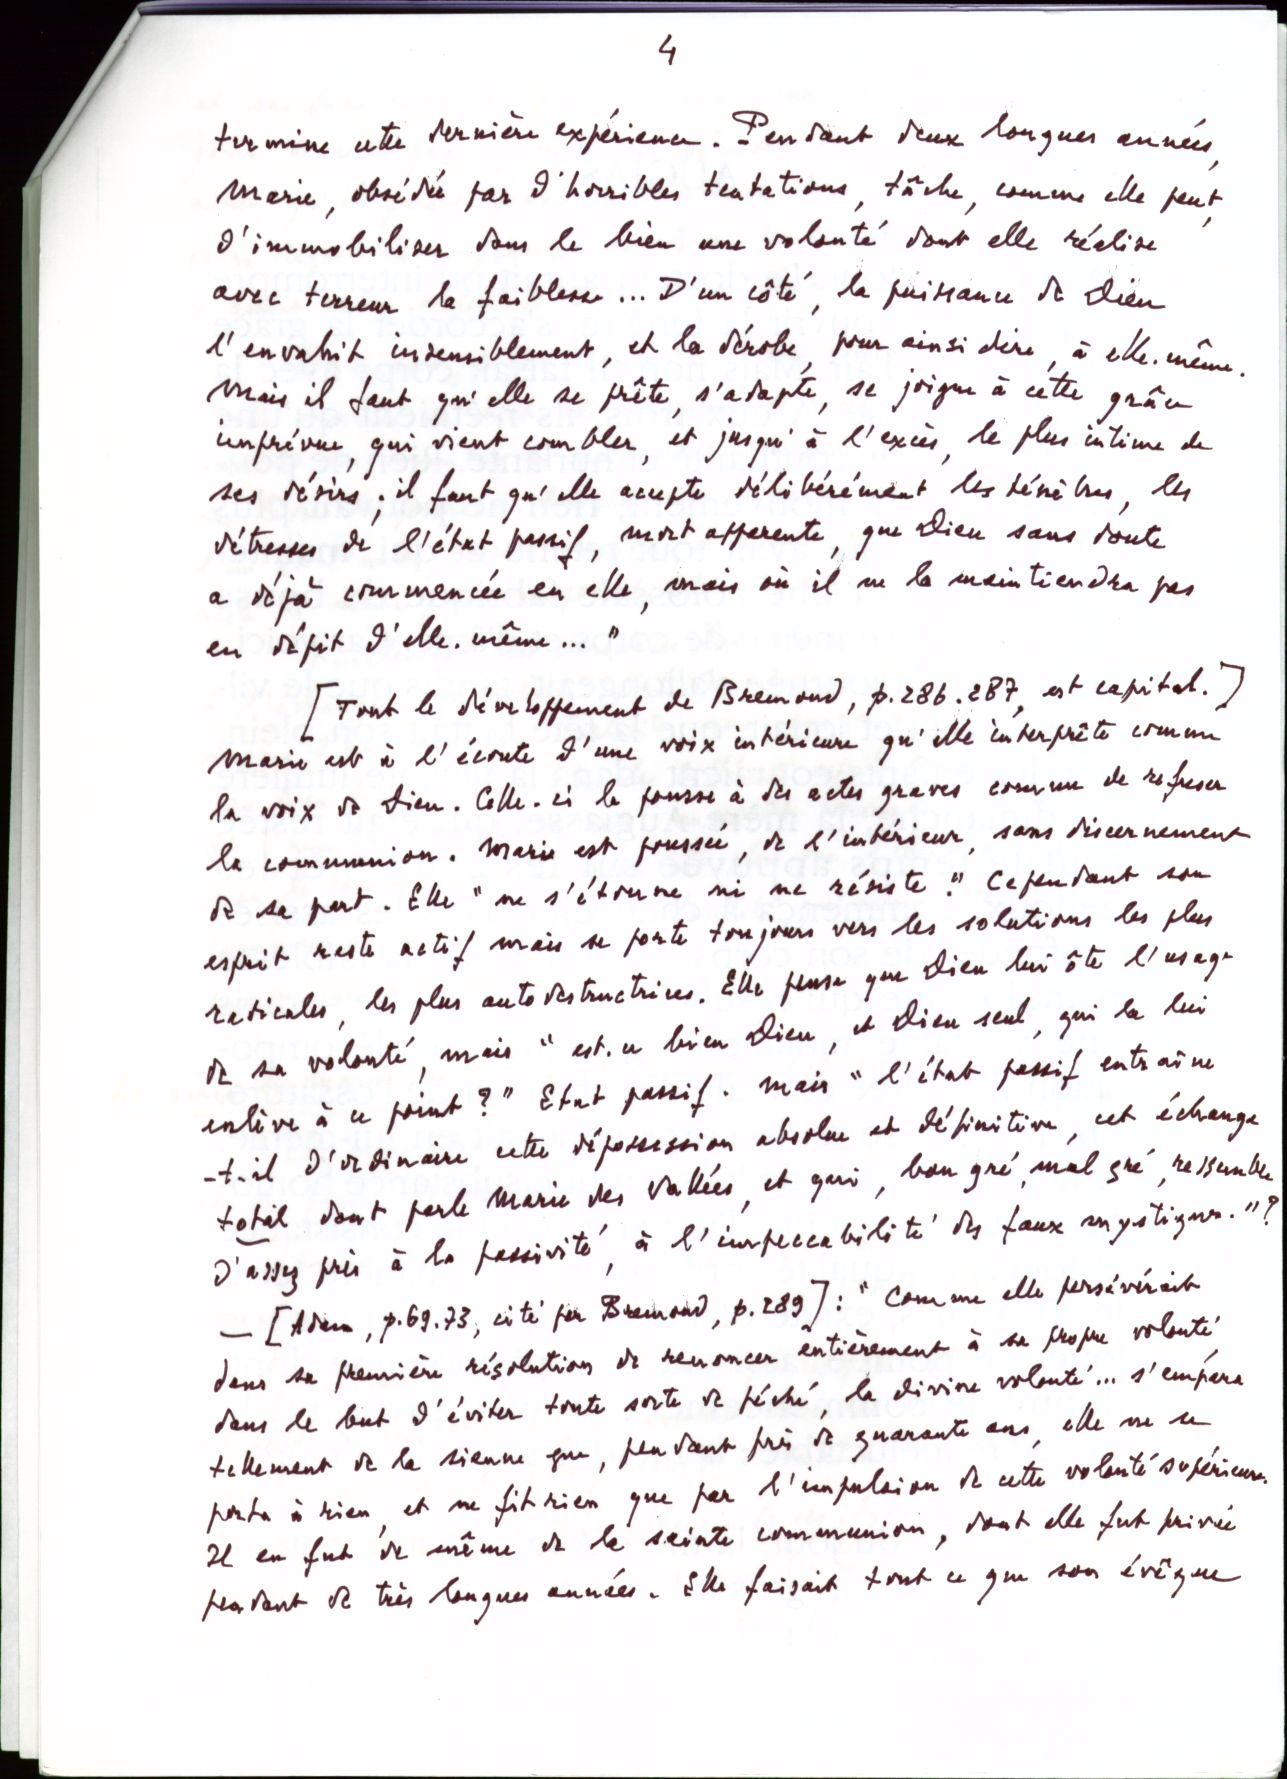 4
termine cette dernière expérience. Pendant deux longues années,
Marie, obsédée par d'horribles tentations, tâche, comme elle peut,
d'immobiliser dans le bien une volonté dont elle réalise
avec terreur la faiblesse... D'un côté, la puissance de Dieu
l'envahit insensiblement, et la dérobe, pour ainsi dire, à elle-même.
Mais il faut qu'elle se prête, s'adapte, se joigne à cette grâce
imprévue, qui vient combler, et jusqu'à l'excès, le plus intime de
ses désirs ; il faut qu'elle accepte délibérément les ténèbres, les
détresses de l'état passif, mort apparente, que Dieu sans doute
a déjà commencée en elle, mais où il ne la maintiendra pas
en dépit d'elle-même... "
[Tout le développement de Bremond, p. 286-287, est capital.]
Marie est à l'écoute d'une voix intérieure qu'elle interprète comme
la voix de Dieu. Celle-ci la pousse à des actes graves comme de refuser
la communion. Marie est poussée, de l'intérieur, sans discernement
de sa part. Elle " ne s'étonne ni ne résiste ". Cependant son
esprit reste actif mais se porte toujours vers les solutions les plus
radicales, les plus autodestructrices. Elle pense que Dieu lui ôte l'usage
de sa volonté, mais " est-ce bien Dieu, et Dieu seul, qui la lui
enlève à ce point ? " Etat passif. Mais " l'état passif entraîne
-t-il d'ordinaire cette dépossession absolue et définitive, cet échange
total dont parle Marie des Vallées, et qui, bon gré, mal gré, ressemble
d'assez près à la passivité, à l'impeccabilité des faux mystiques. " ?
— [Adam, p. 69-73, cité par Bremond, p. 289] : " Comme elle persévérait
dans sa première résolution de renoncer entièrement à sa propre volonté,
dans le but d'éviter toute sorte de péché, la divine volonté... s'empara
tellement de la sienne que, pendant près de quarante ans, elle ne se
porta à rien, et ne fit rien que par l'impulsion de cette volonté supérieure.
Il en fut de même de la sainte communion, dont elle fut privée
pendant de très longues années. Elle faisait tout ce que son évêque